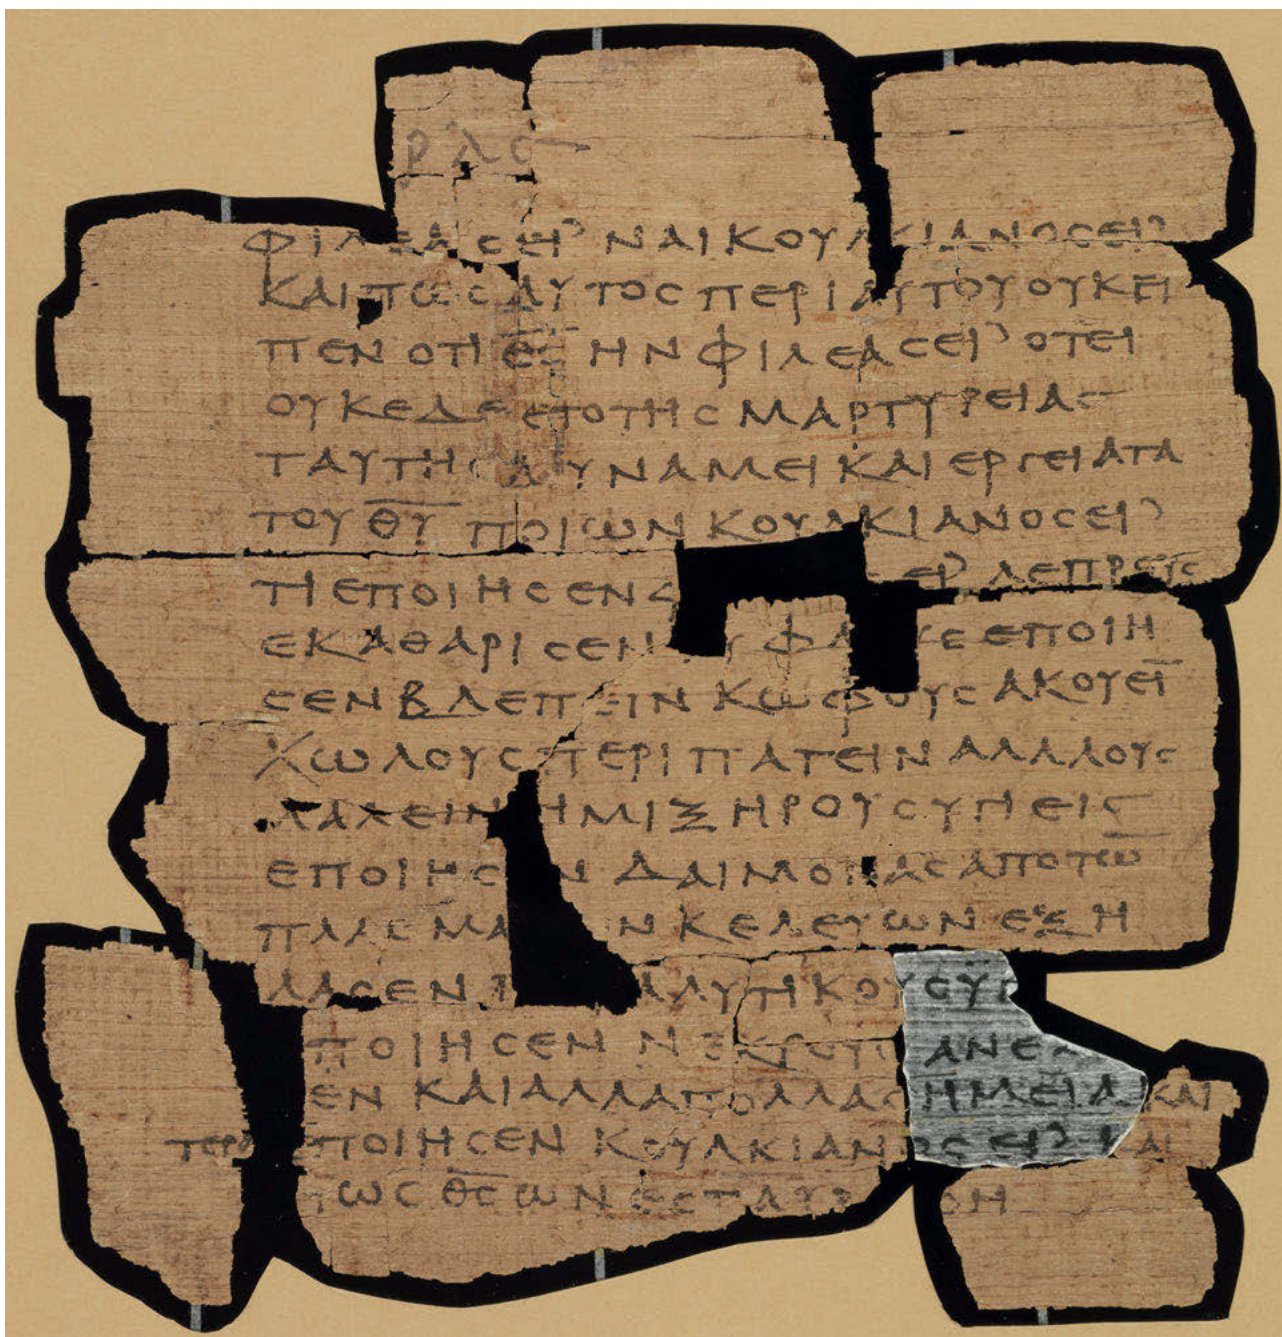 ρλϛ
ΦΙΛΕΑϹΕΙ᾿ ΝΑΙ ΚΟΥΛΚΙΑΝΟϹΕΙ᾿
ΚΑΙΠΩϹΑΥΤΟϹΠΕΡΙΑΥΤΟΥΟΥΚΕΙ
ΠΕΝ ΟΤΙ Θ̅Ϲ̅ ΗΝ ΦΙΛΕΑϹΕΙ᾿ ΟΤΕΙ
ΟΥΚΕΔΕΕΤΟΤΗϹ ΜΑΡΤΥΡΕΙΑϹ
ΤΑΥΤΗϹΔΥΝΑΜΕΙ ΚΑΙ ΕΡΓΕΙΑΤΑ
ΤΟΥ Θ̅Υ̅ ΠΟΙΩΝ ΚΟΥΛΚΙΑΝΟϹΕΙ᾿
ΤΙΕΠΟΙΗϹΕΝ ΕΙ᾿ ΛΕΠΡΟΥϹ
ΕΚΑΘΑΡΙϹΕΝ ΕΠΟΙΗ
ϹΕΝ ΒΛΕΠΕΙΝ ΚΩΦΟΥϹ ΑΚΟΥΕΙ̅
ΧΩΛΟΥϹ ΠΕΡΙΠΑΤΕΙΝ ΑΛΛΛΟΥϹ
ΛΑΛΕΙΝ ΗΜΙΞΗΡΟΥϹ ΥΓΙΕΙϹ
ΕΠΟΙΗϹΕΝ ΔΑΙΜΟΝΑϹ ΑΠΟΤΩ̅
ΠΛΑϹΜΑ ΩΝ ΚΕΛΕΥΩΝ ΕΞΗ
ΛΑϹΕΝ ΑΛΥΤΙΚΟΥϹΥΓ
ΠΟΙΗϹΕΝ ΝΕΚΡΟΥϹ ΑΝΕ
ΕΝ ΚΑΙΑΛΛΑΠΟΛΛΑϹΗΜΕΙΑ ΚΑΙ
ΤΕΡΑ ΠΟΙΗϹΕΝ ΚΟΥΛΚΙΑΝΟϹΕΙ᾿ ΚΑΙ
ΠΩϹ Θ̅Ϲ̅ ΩΝ ΕϹΤΑΥΡ ΘΗ